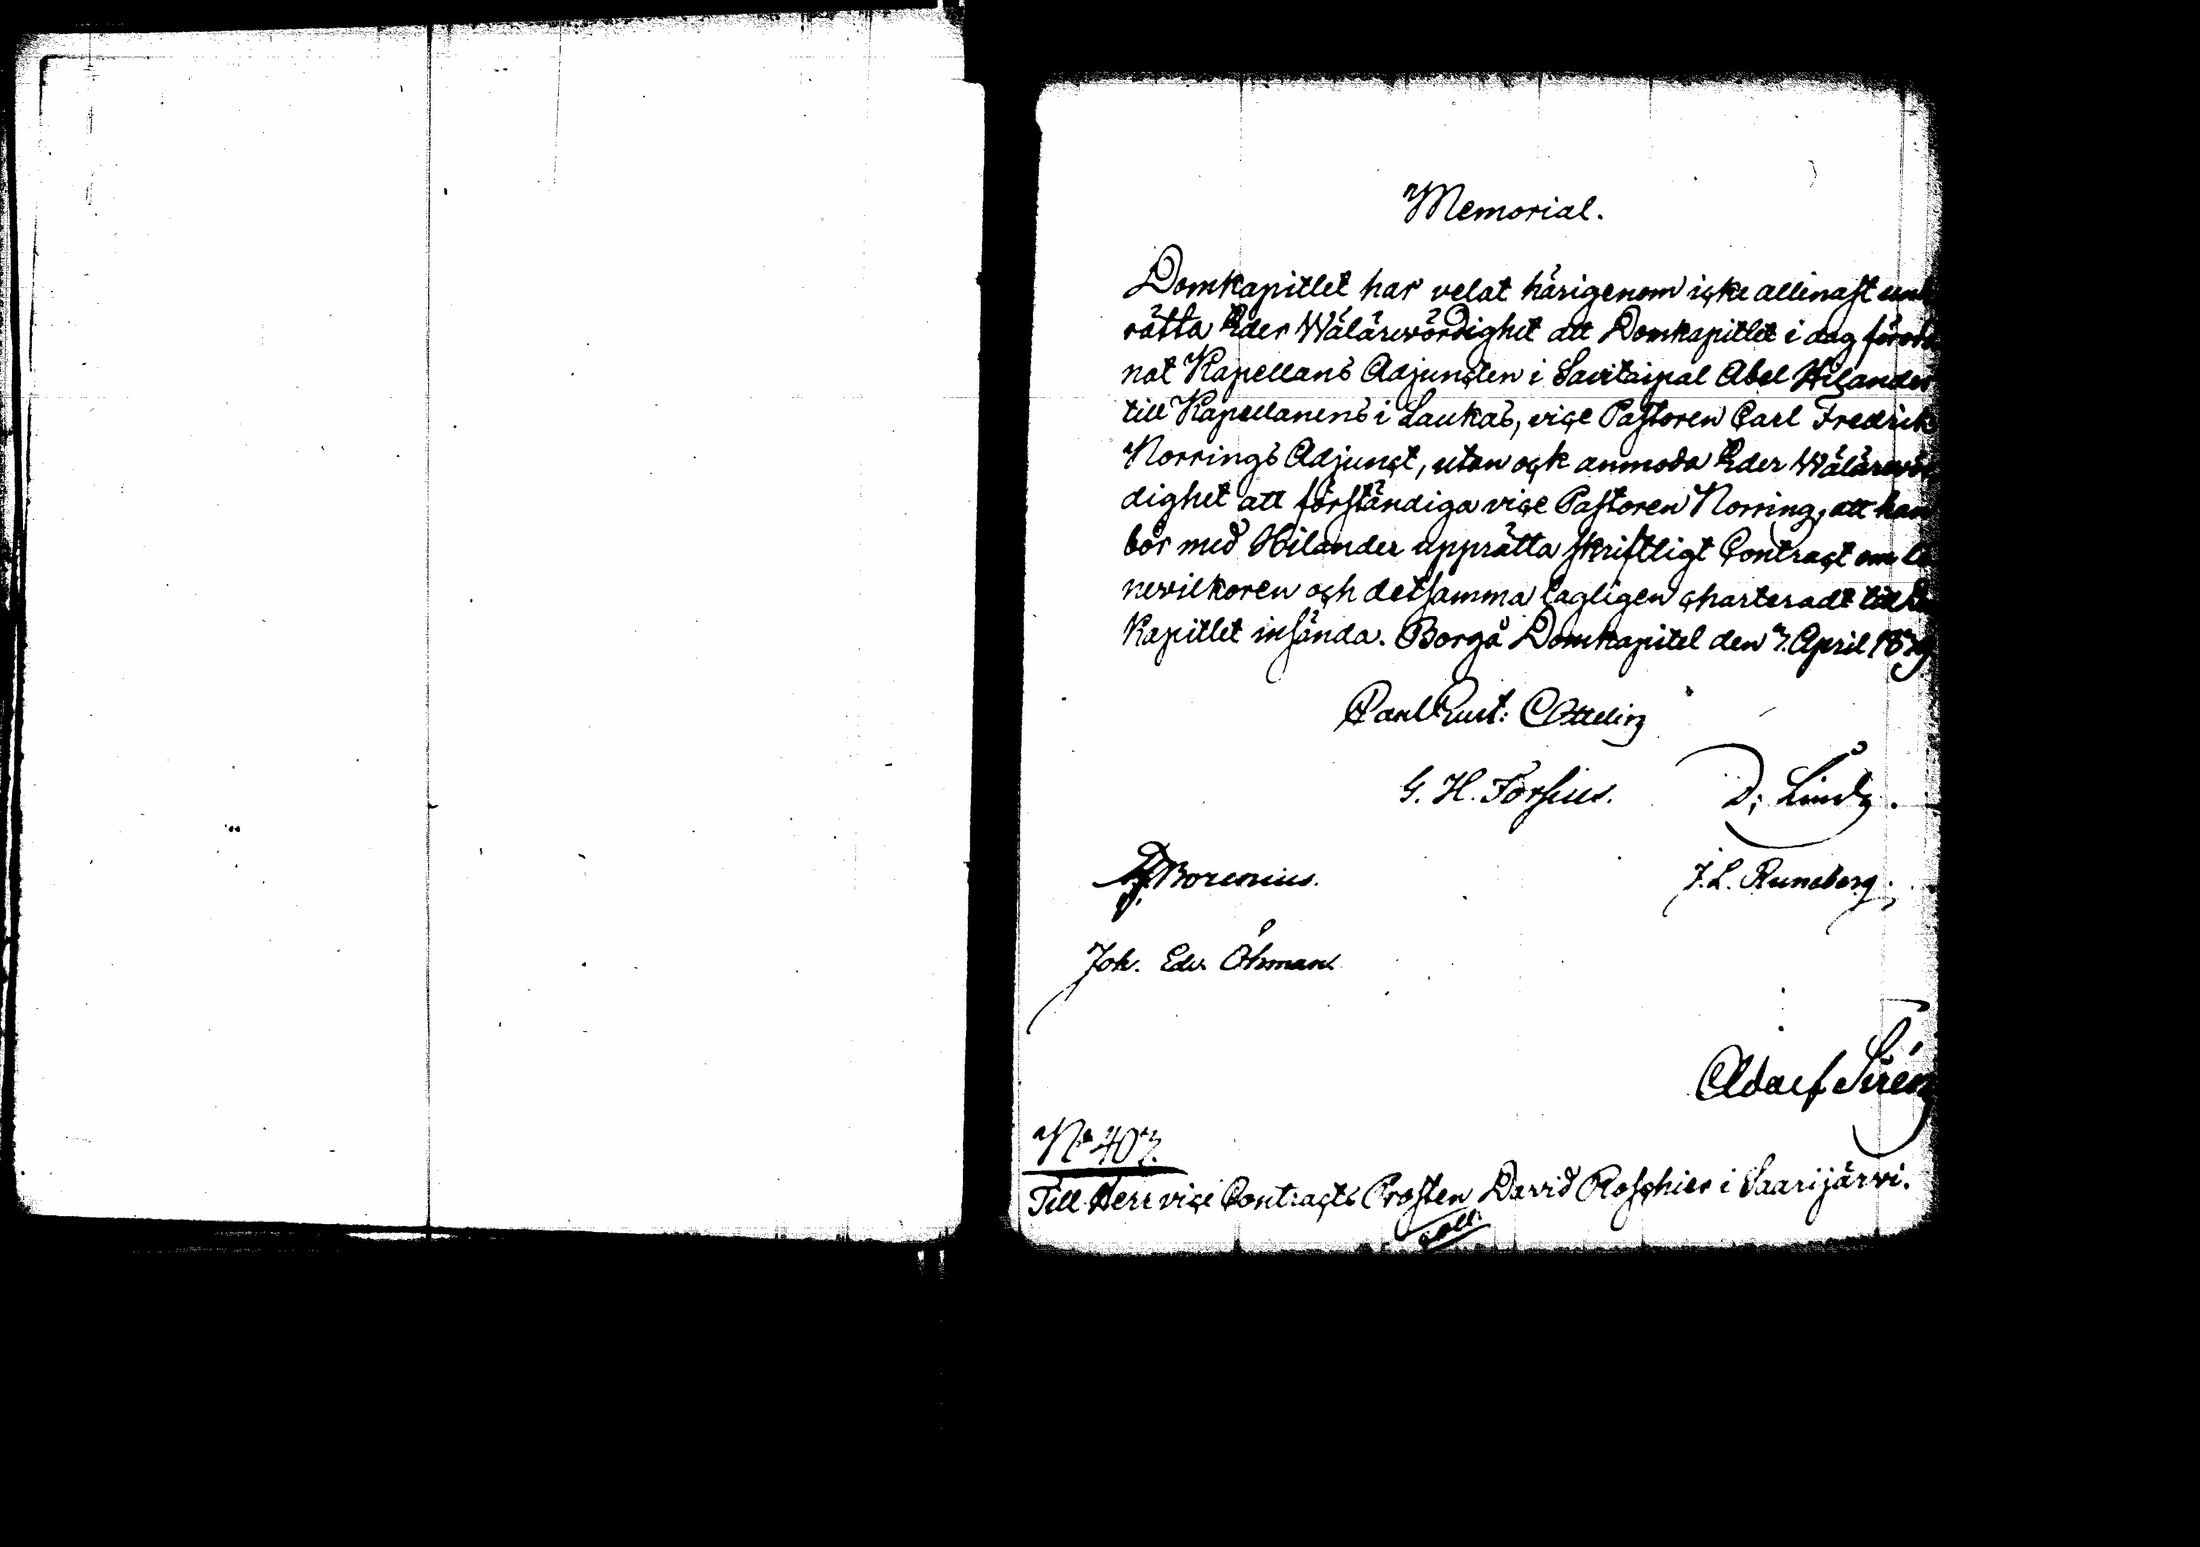 Memorial.
Domkapitlet har velat härigenom icke allenast und
rätta Eder Wälärewördighet att Domkapitlet i dag förord
nat Kapellans Adjuncten i Savitaipal Abel Hilander
till Kapellanens i Laukas, vice Pastoren Carl Fredrik
Norrings Adjunct, utan ock anmoda Eder Wälärewör
dighet att förständiga vice Pastoren Norring, att han
bör med Hilander upprätta skriftligt Contract om lö
nevilkoren och detsamma lagligen charteradt till Dom
Kapitlet insända. Borgå Domkapitel den 7. April
G. H. Forsius. D: Lindh.
Borenius. J. L. Runeberg.
Joh. Edv. Öhman
Adolf Sirén
No 407.
Till Herr vice Contracts Prosten David Roschier i Saarijärvi.